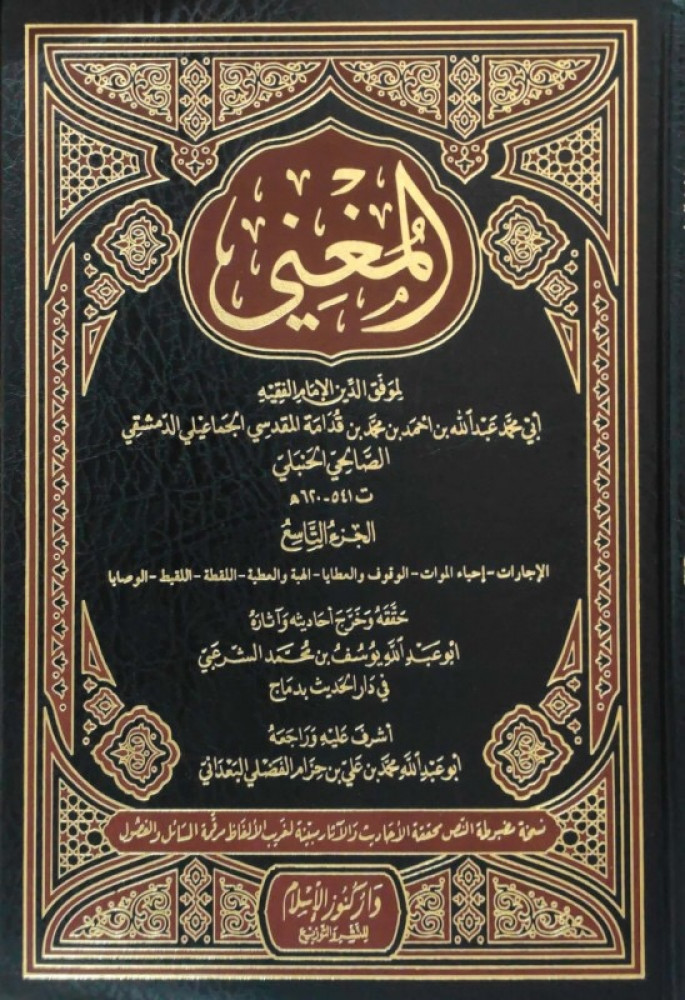 المُغْنِي
لموَفق الدِّين الإمَام الفقِيْهِ
أبي محمَّد عَبْد الله بن احمَد بن محمَّد بن قُدَامَة المقدسِي الجمَاعيْلي الدّمشقِي
الصَّالحيّ الحَنبَليّ
ت ٥٤١-٦٢٠هـ
الجزءُ التَّاسِعُ
الإجارات - إحياء الموات - الوقوف والعطايا - الهبة والعطية - اللقطة - اللقيط - الوصايا
حَقَّقَهُ وَخَرَّجَ أحَاديثه وَآثارَهُ
أبو عَبد اللهِ يوُسُف بن مُحمَّد الشرعَبيّ
في دَار الحَديث بدمَاج
أشرفَ عَليْهِ وَرَاجَعَهُ
أبو عَبد اللهِ محمَّد بن عَلي بن حِزَام الفَضلي البَعدَانيّ
نسخة مضبوطة النص محققة الأحاديث والآثار مبينة لغريب الألفاظ مرقمة المسائل والفصول
دار كنوز الإسلام
للنشر والتوزيع